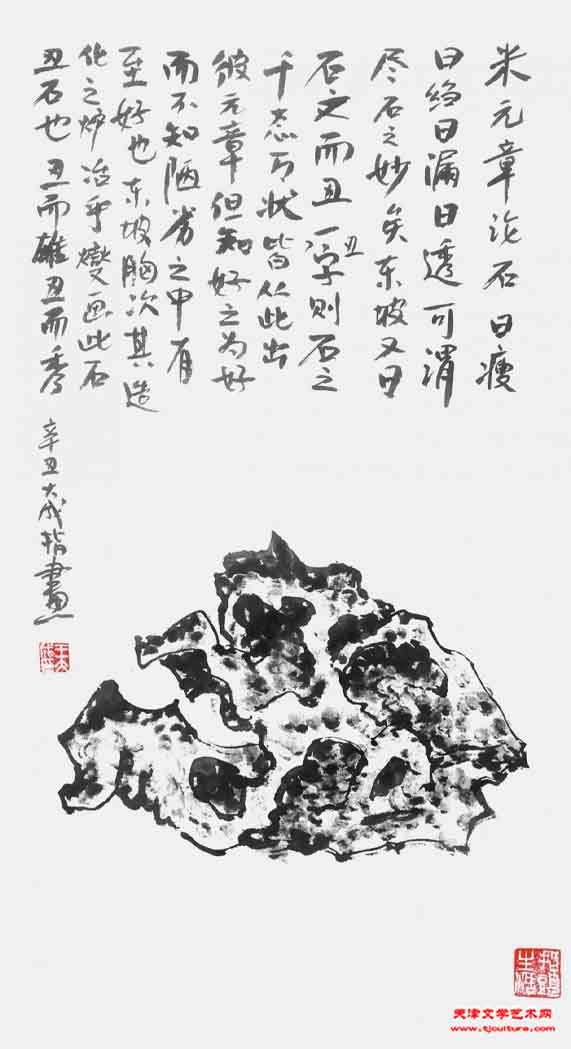 米元章论石曰瘦
曰绉曰漏曰透可谓
尽石之妙矣东坡又曰
石文而丑一丑字则石之
千态万状皆从此出
彼元章但知好之为好
而不知陋劣之中有
至好也东坡胸次其造
化之炉冶乎燮画此石
丑石也丑而雄丑而秀
辛丑大成指画
天津文学艺术网
www.tjculture.com